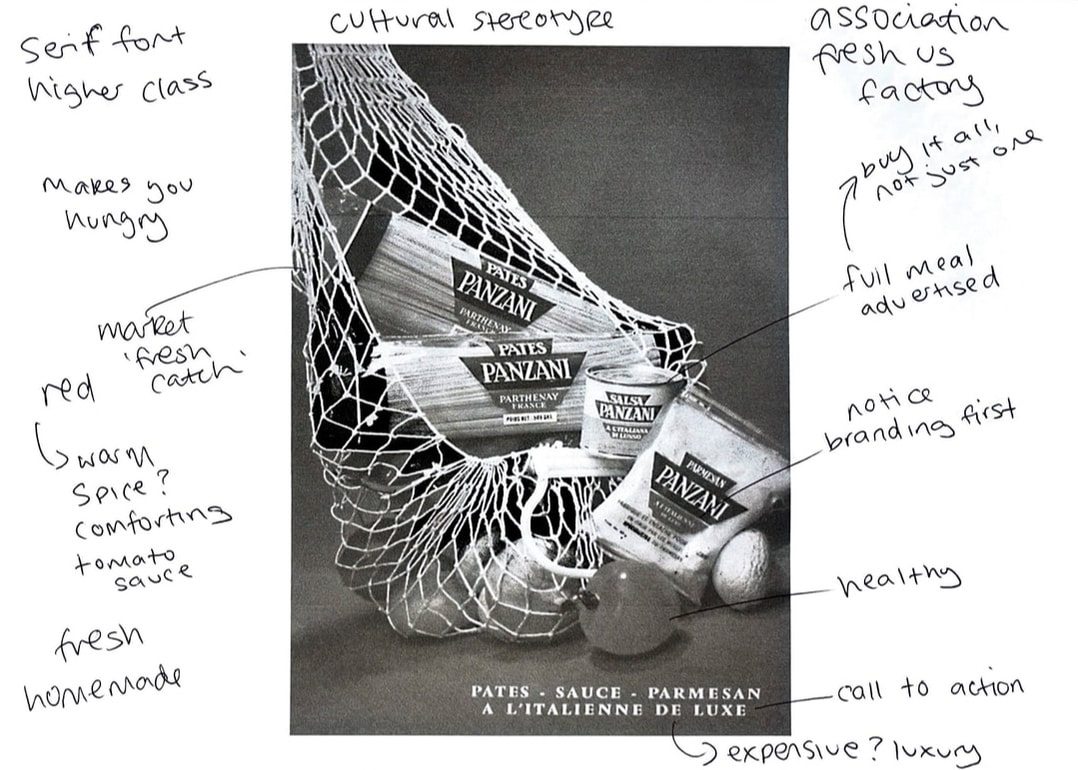 cultural stereotype
serif font
higher class
makes you
hungry
market
'fresh
catch'
red
warm
spice?
comforting
tomato
sauce
fresh
homemade
association
fresh us
factory
buy it all,
not just one
full meal
advertised
notice
branding first
healthy
call to action
expensive? luxury
PATES
PANZANI
PARTHENAY
FRANCE
PATES
PANZANI
PARTHENAY
FRANCE
SALSA
PANZANI
A L'ITALIANA
DI LUSSO
PARMESAN
PANZANI
PATES - SAUCE - PARMESAN
A L'ITALIENNE DE LUXE